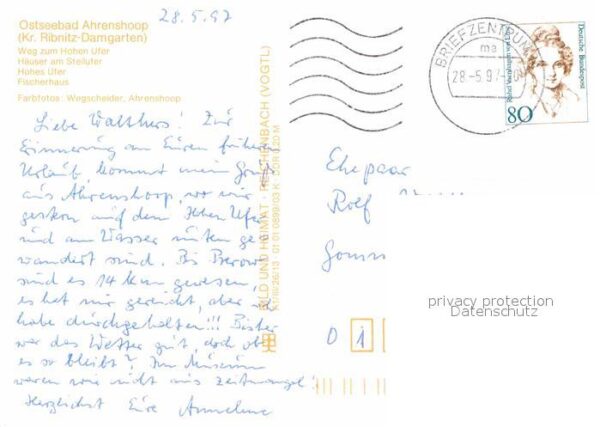 28.5.97
Ostseebad Ahrenshoop
(Kr. Ribnitz-Damgarten)
Weg zum Hohen Ufer
Häuser am Steilufer
Hohes Ufer
Fischerhaus
Farbfotos: Wegscheider, Ahrenshoop
Liebe Walthers! Zur
Erinnerung an Euren früheren
Urlaub, kommt mein Gruß
aus Ahrenshoop, wo wir
gestern auf dem Hohen Ufer
und am Wasser unten ge
wandert sind. Bis
sind es 14 km gewesen,
es hat mir gereicht, aber
habe durchgehalten!!! Bisher
war das Wetter gut, doch ob
es so bleibt? Im Museum
waren wir nicht aus Zeitmangel!
Herzlichst Eure Annelene
BILD UND HEIMAT · REICHENBACH (VOGTL)
01 01 0899/03 K
BRIEFZENTRUM
ma
28.-5.97
Deutsche Bundespost
80
Ehepaar
Rolf
privacy protection
Datenschutz
0 1